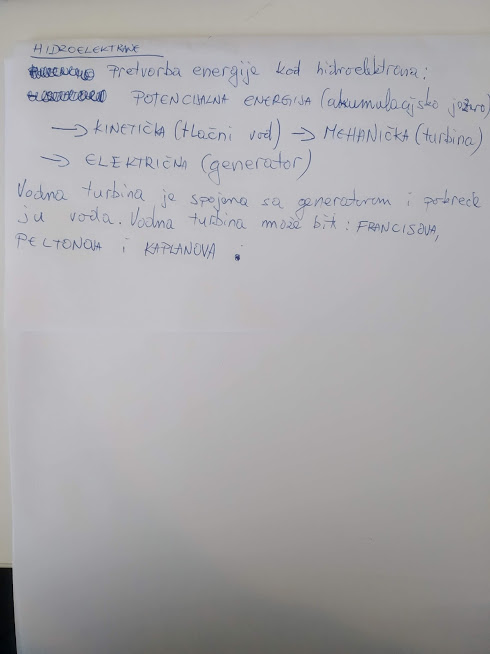 HIDROELEKTRANE
Pretvorba energije kod hidroelektrana:
POTENCIJALNA ENERGIJA (akumulacijsko jezero)
→ KINETIČKA (tlačni vod) → MEHANIČKA (turbina)
→ ELEKTRIČNA (generator)
Vodna turbina je spojena sa generatorom i pokreće
ju voda. Vodna turbina može bit: FRANCISOVA,
PELTONOVA i KAPLANOVA.